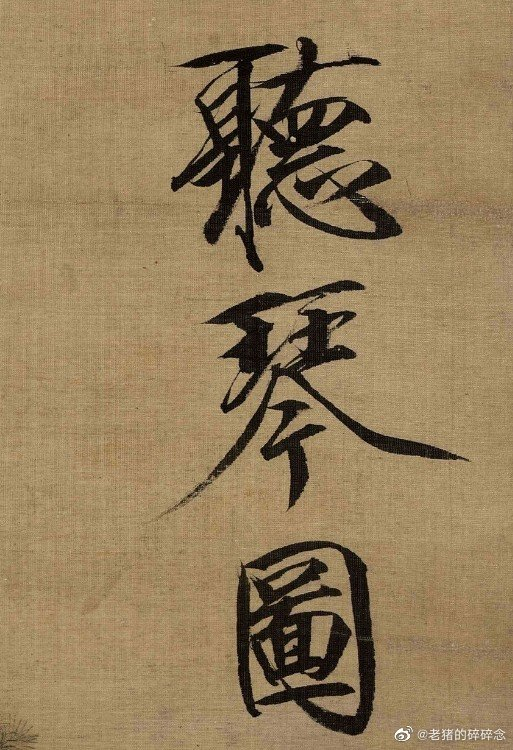 聽琴圖
@老猪的碎碎念